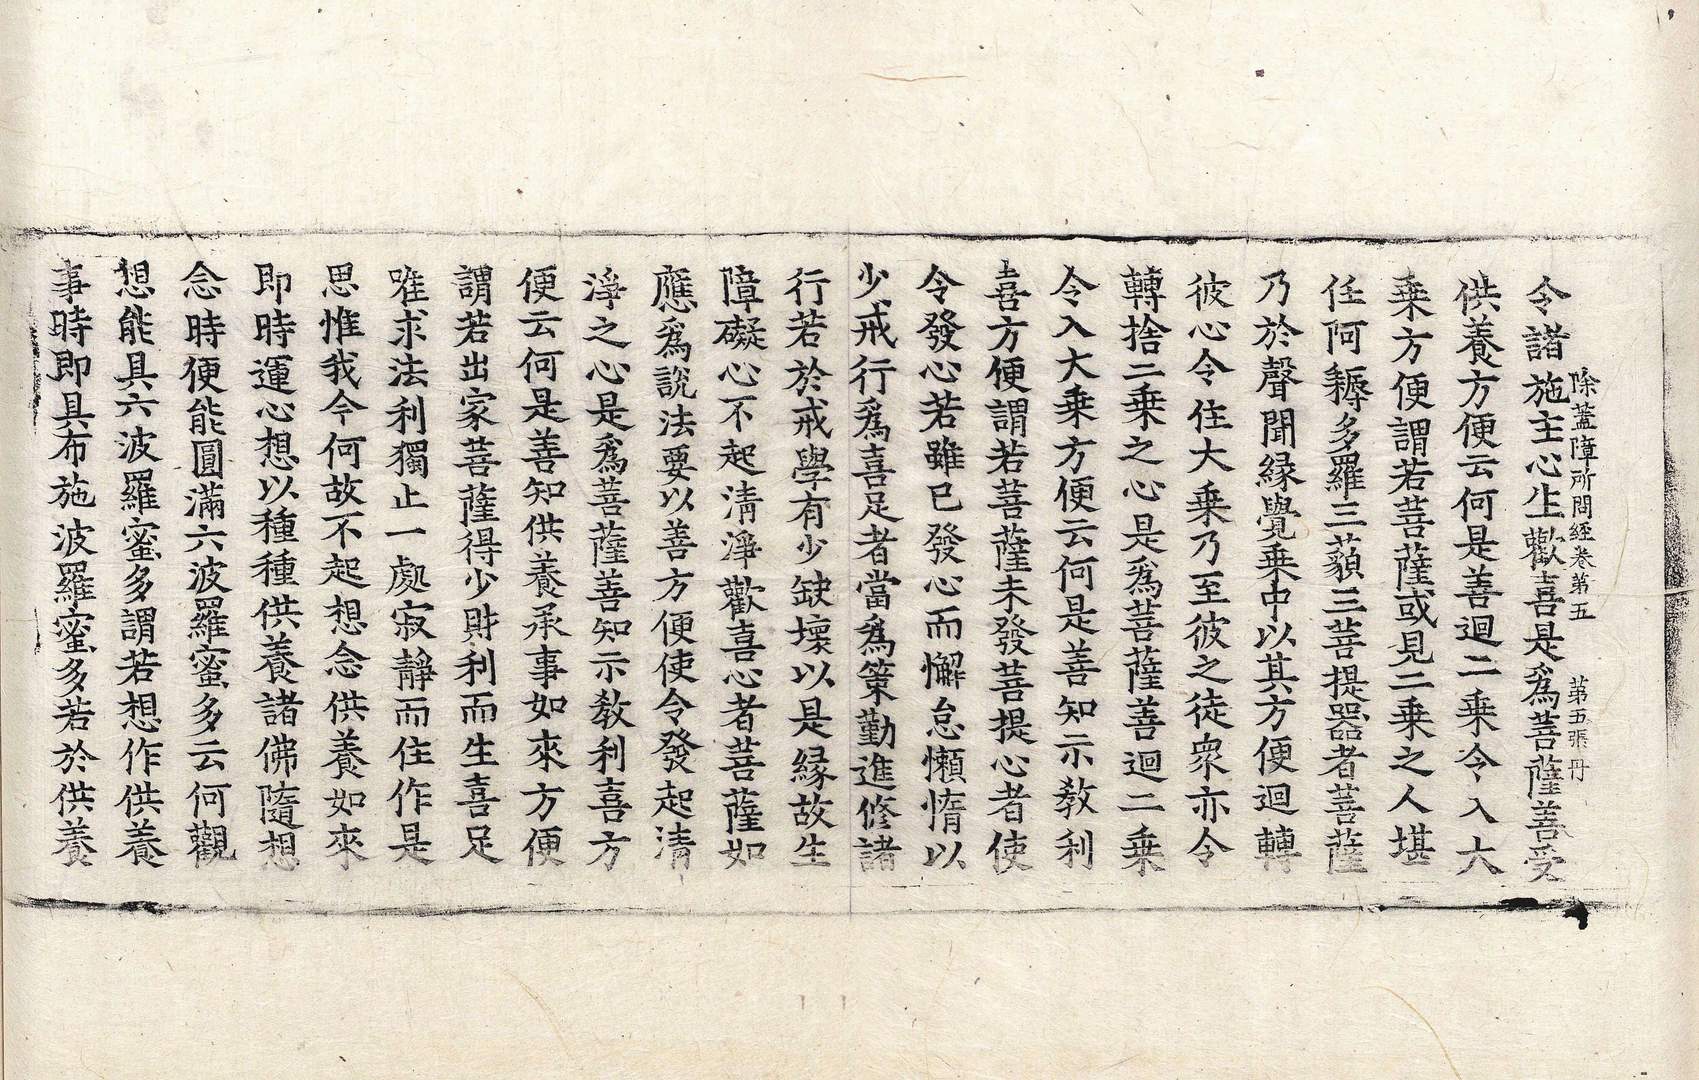 除蓋障所問經卷第五　第五張　冄
令諸施主心生歡喜是爲菩薩善受
供養方便云何是善迴二乗令入大
乗方便謂若菩薩或見二乗之人堪
任阿耨多羅三藐三菩提器者菩薩
乃於聲聞緣覺乗中以其方便迴轉
彼心令住大乗乃至彼之徒衆亦令
轉捨二乗之心是爲菩薩善迴二乗
令入大乗方便云何是善知示教利
喜方便謂若菩薩未發菩提心者使
令發心若雖已發心而懈怠懶惰以
少戒行爲喜足者當爲策勤進修諸
行若於戒學有少缺壞以是緣故生
障礙心不起淸淨歡喜心者菩薩如
應爲說法要以善方便使令發起淸
淨之心是爲菩薩善知示教利喜方
便云何是善知供養承事如來方便
謂若出家菩薩得少財利而生喜足
唯求法利獨止一處寂靜而住作是
思惟我今何故不起想念供養如來
即時運心想以種種供養諸佛隨想
念時便能圓滿六波羅蜜多云何觀
想能具六波羅蜜多謂若想作供養
事時即具布施波羅蜜多若於供養